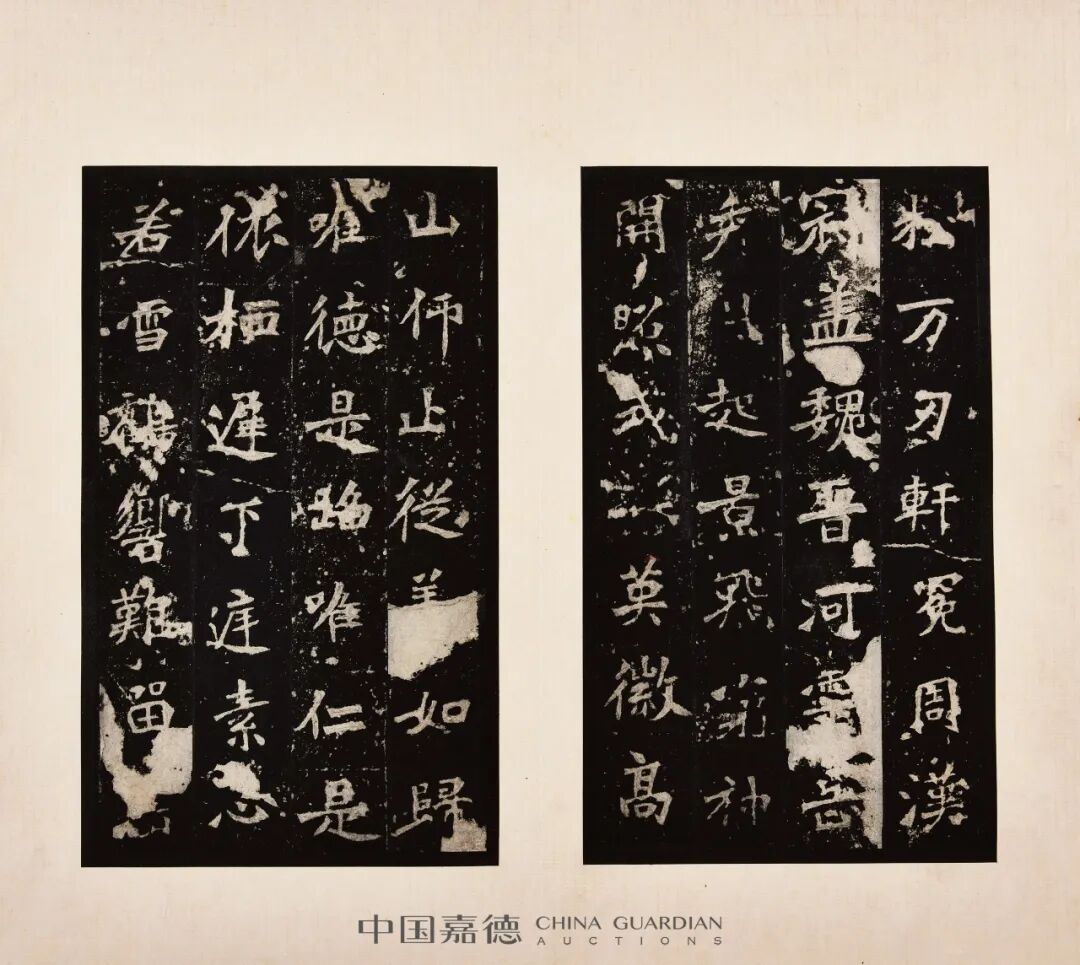 松万刃軒冕周漢
冠盖魏晉河靈岳
秀月起景飛窮神
開照式誕英徽高
山仰止從善如歸
唯德是蹈唯仁是
依栖遲下庭素心
若雪鶴響難留
中国嘉德 CHINA GUARDIAN
AUCTIONS